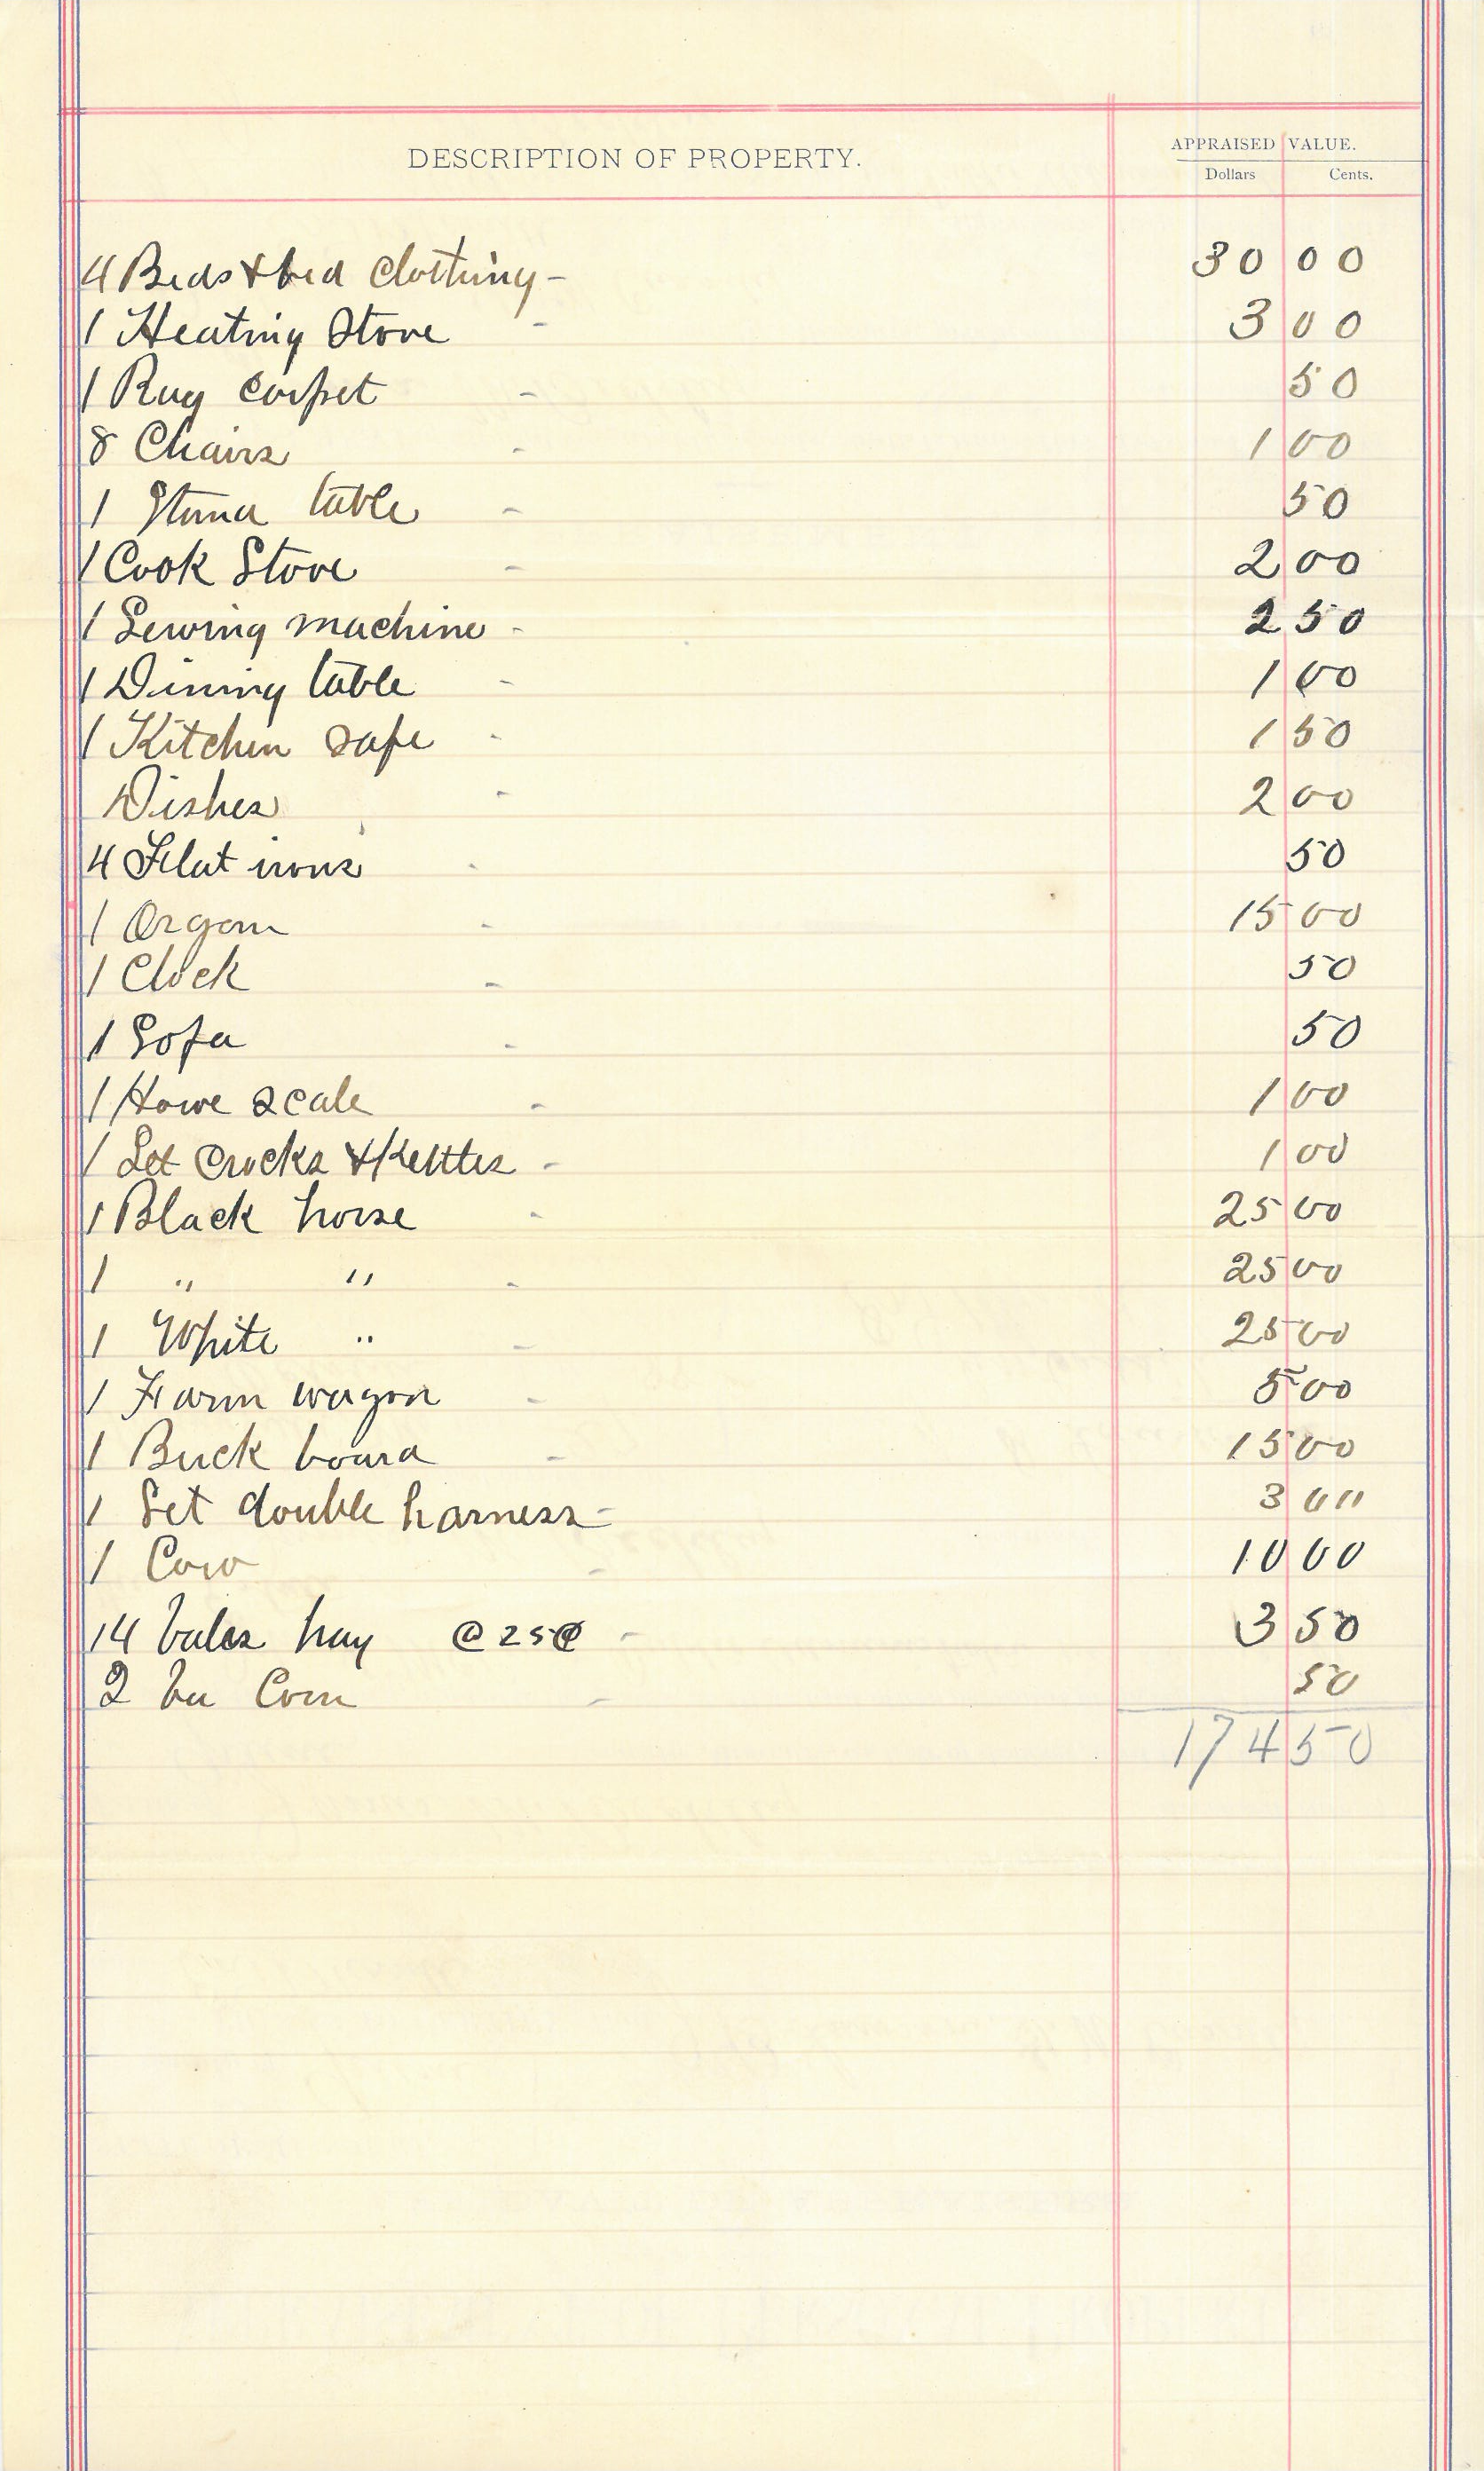 DESCRIPTION OF PROPERTY. APPRAISED VALUE.
Dollars Cents.
4 Beds & bed Clothing - 30 00
1 Heating Stove - 3 00
1 Rug Carpet - 50
8 Chairs - 1 00
1 Stand table - 50
1 Cook Stove - 2 00
1 Sewing machine - 2 50
1 Dining table - 1 00
1 Kitchen safe - 1 50
Dishes - 2 00
4 Flat irons - 50
1 Organ - 15 00
1 Clock - 50
1 Sofa - 50
1 Howe scale - 1 00
1 Set Crocks & Kettles - 1 00
1 Black horse - 25 00
1 " " - 25 00
1 White " - 25 00
1 Farm wagon - 5 00
1 Buck board - 15 00
1 Set double harness - 3 00
1 Cow - 10 00
14 bales hay @ 25¢ - 3 50
2 bu Corn - 50
174 50